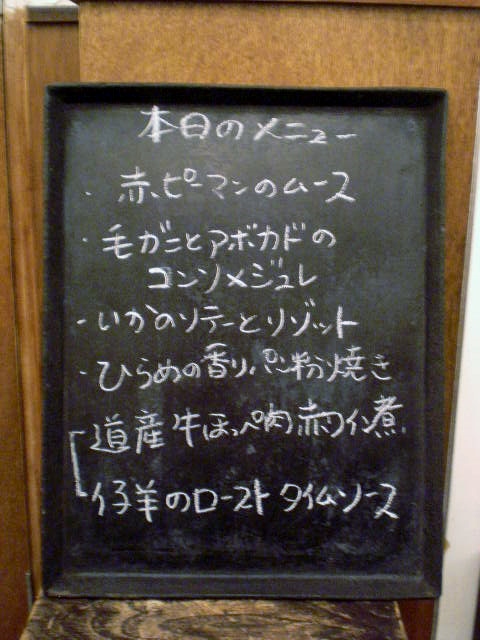 本日のメニュー
・赤ピーマンのムース
・毛ガニとアボカドの
コンソメジュレ
・いかのソテーとリゾット
・ひらめの香りパン粉焼き
道産牛ほっぺ肉赤ワイン煮
仔羊のロースト タイムソース